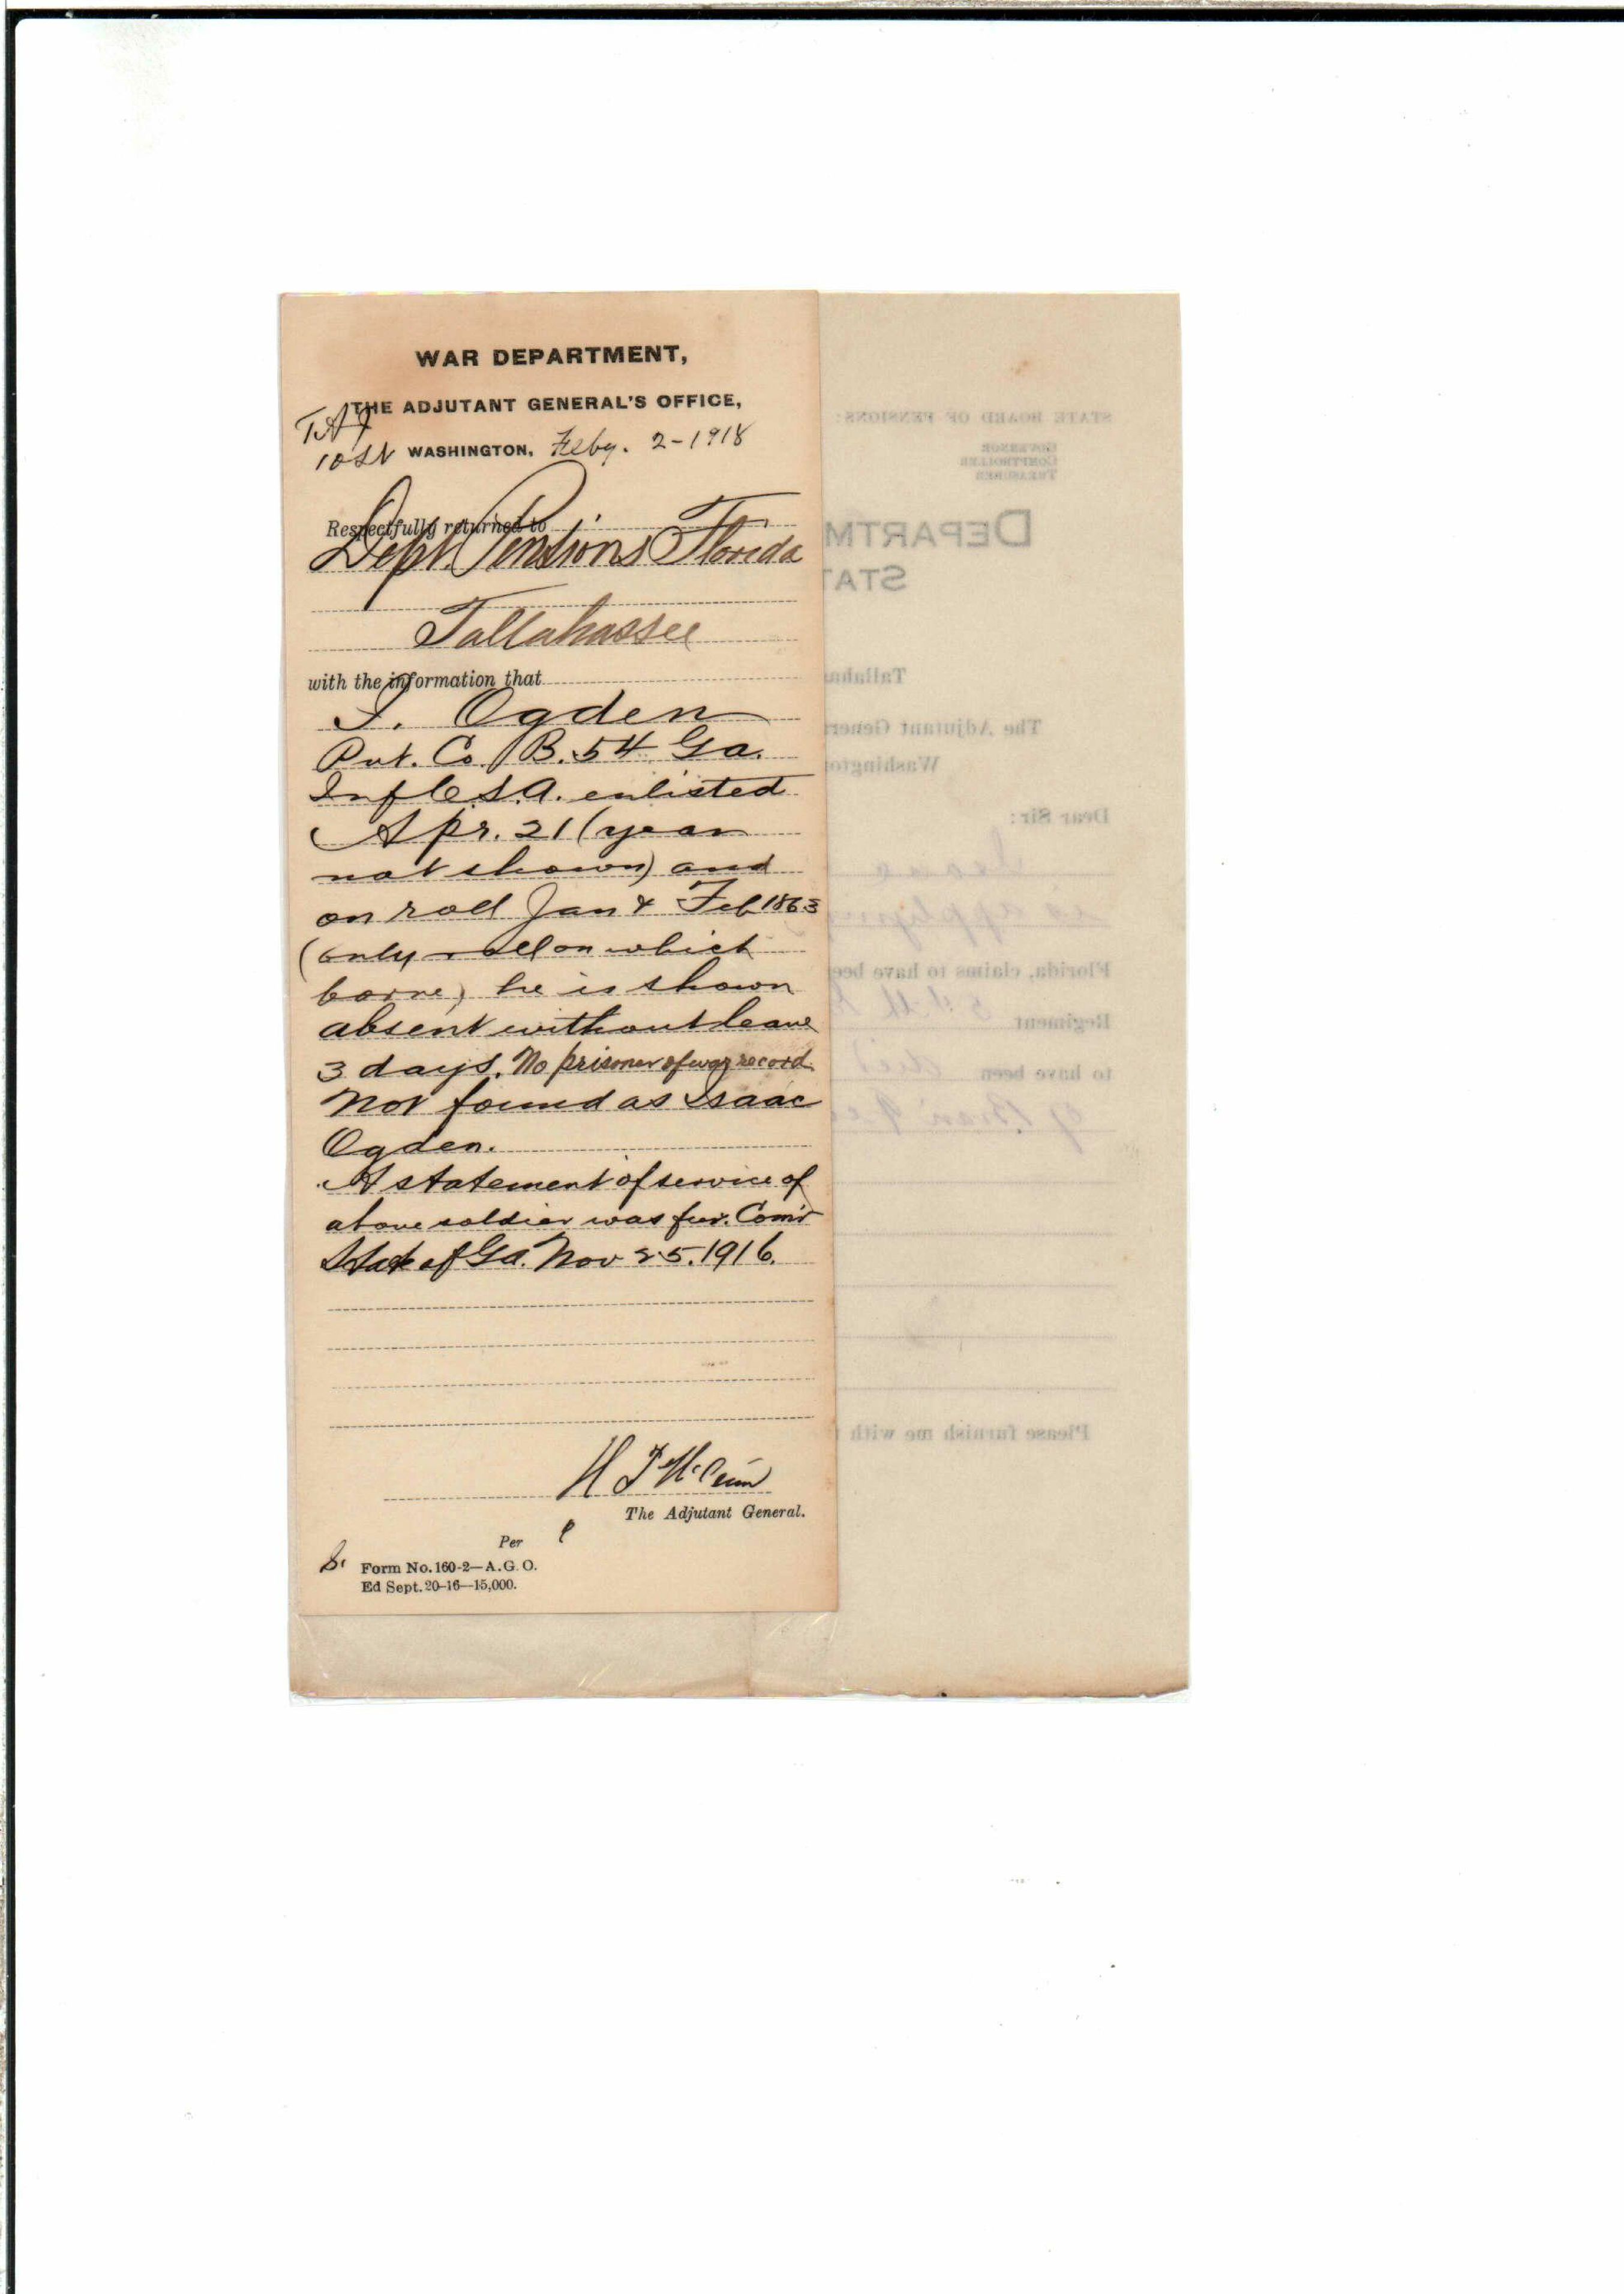 WAR DEPARTMENT,
THE ADJUTANT GENERAL'S OFFICE,
WASHINGTON, Feby. 2-1918
Respectfully returned to
Dept. Pensions Florida
Tallahassee
with the information that
I. Ogden
Pvt. Co. B. 54 Ga.
Inf C.S.A. enlisted
Apr. 21 (year
not shown) and
on roll Jan & Feb 1863
(only roll on which
borne) he is shown
absent without leave
3 days. No prisoner of war record
Not found as Isaac
Ogden.
A statement of service of
above soldier was fur. Com'r
State of Ga. Nov 25. 1916.
The Adjutant General.
Per
Form No. 160-2—A.G.O.
Ed Sept. 20-16—15,000.
STATE BOARD OF PENSIONS:
GOVERNOR
COMPTROLLER
TREASURER
DEPARTM
STAT
Tallaha
The Adjutant Gener
Washingto
Dear Sir:
is applyin
Florida, claims to have bee
Regiment 54th
to have been
Please furnish me with